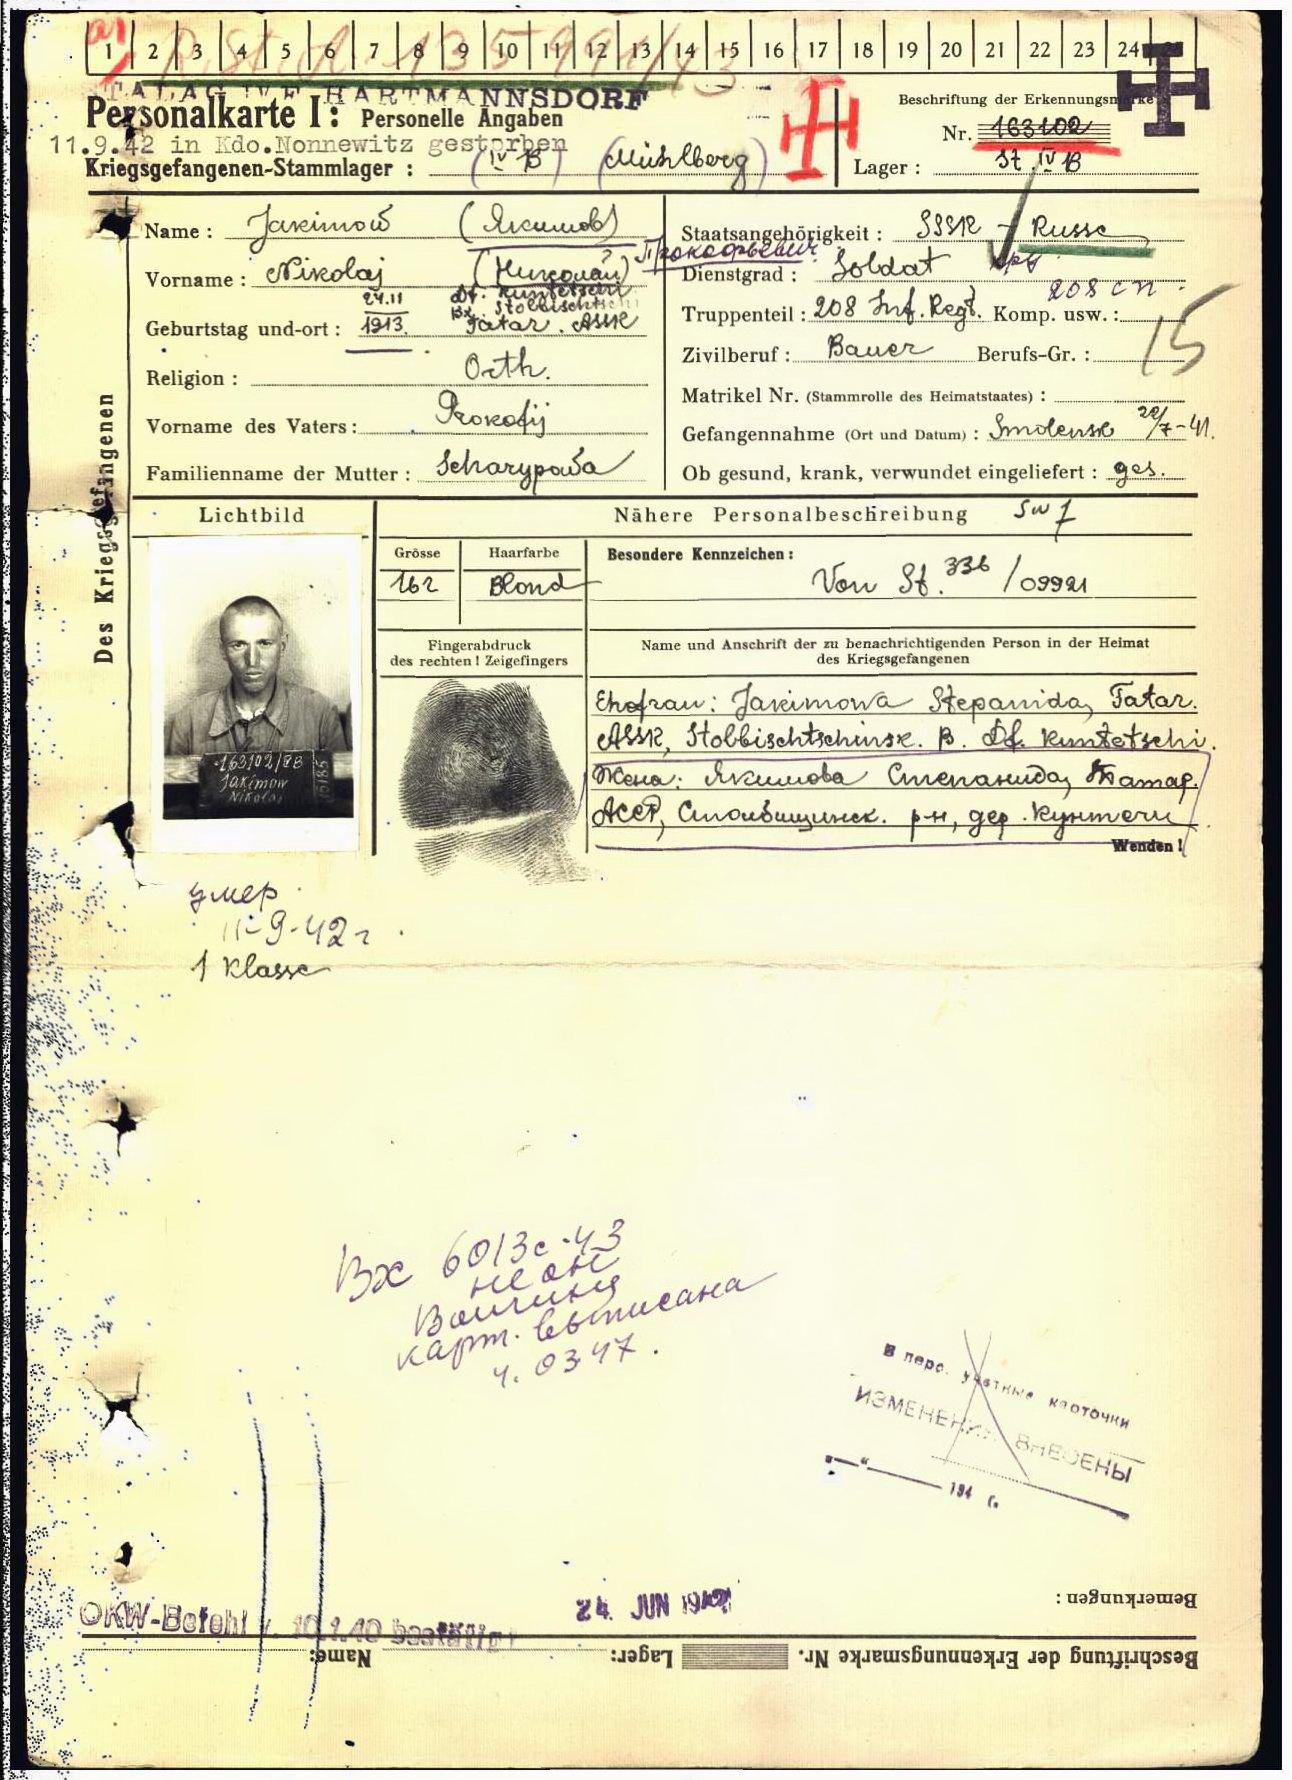 1 2 3 4 5 6 7 8 9 10 11 12 13 14 15 16 17 18 19 20 21 22 23 24
TALAG IV F HARTMANNSDORF
Personalkarte I: Personelle Angaben
11.9.42 in Kdo.Nonnewitz gestorben
Kriegsgefangenen-Stammlager : (IV B) (Mühlberg)
Beschriftung der Erkennungsmarke
Nr. 163102
Lager : St. IV B
Des Kriegsgefangenen
Name : Jakimow (Якимов)
Vorname : Nikolaj (Николай) Прокофьевич
Geburtstag und-ort : 24.11 1913 Df. Kuntetschi
Bz. Stolbischtschi
Tatar. ASSR
Religion : Orth.
Vorname des Vaters : Prokofij
Familienname der Mutter : Scharypowa
Staatsangehörigkeit : SSSR - Russe
Dienstgrad : Soldat
208 сп
Truppenteil : 208 Inf. Regt. Komp. usw. :
Zivilberuf : Bauer Berufs-Gr. : 15
Matrikel Nr. (Stammrolle des Heimatstaates) :
Gefangennahme (Ort und Datum) : Smolensk 20/7-41.
Ob gesund, krank, verwundet eingeliefert : ges.
Lichtbild
Nähere Personalbeschreibung
Grösse
162
Haarfarbe
Blond
Besondere Kennzeichen :
Von St. 336 / 09921
163102/8B
Jakimow
Nikolaj
Fingerabdruck
des rechten ! Zeigefingers
Name und Anschrift der zu benachrichtigenden Person in der Heimat
des Kriegsgefangenen
Ehefrau: Jakimowa Stepanida, Tatar.
ASSR, Stolbischtschinsk. B. Df. Kuntetschi.
Жена: Якимова Степанида, Татар.
АССР, Столбищинск. р-н, дер. Кунтечи
Wenden !
умер
11-9-42 г.
1 Klasse
Вх 6013с-43
карт. выписана
ч. 0347.
В перс. учетные карточки
ИЗМЕНЕНИЯ ВНЕСЕНЫ
"—" 194 г.
Bemerkungen :
24. JUN 1942
OKW-Befehl v. 10.1.40 bestätigt
Beschriftung der Erkennungsmarke Nr. Lager: Name: